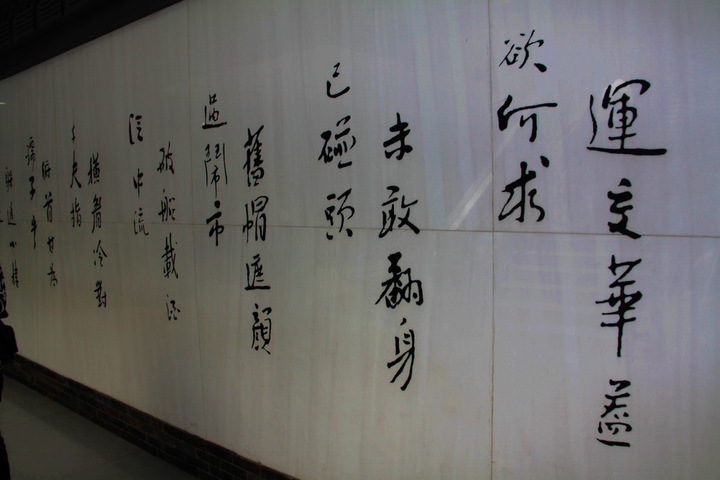 運交華蓋
欲何求
未敢翻身
已碰頭
舊帽遮顏
過鬧市
破船載酒
泛中流
橫眉冷對
千夫指
俯首甘為
孺子牛
躲進小樓